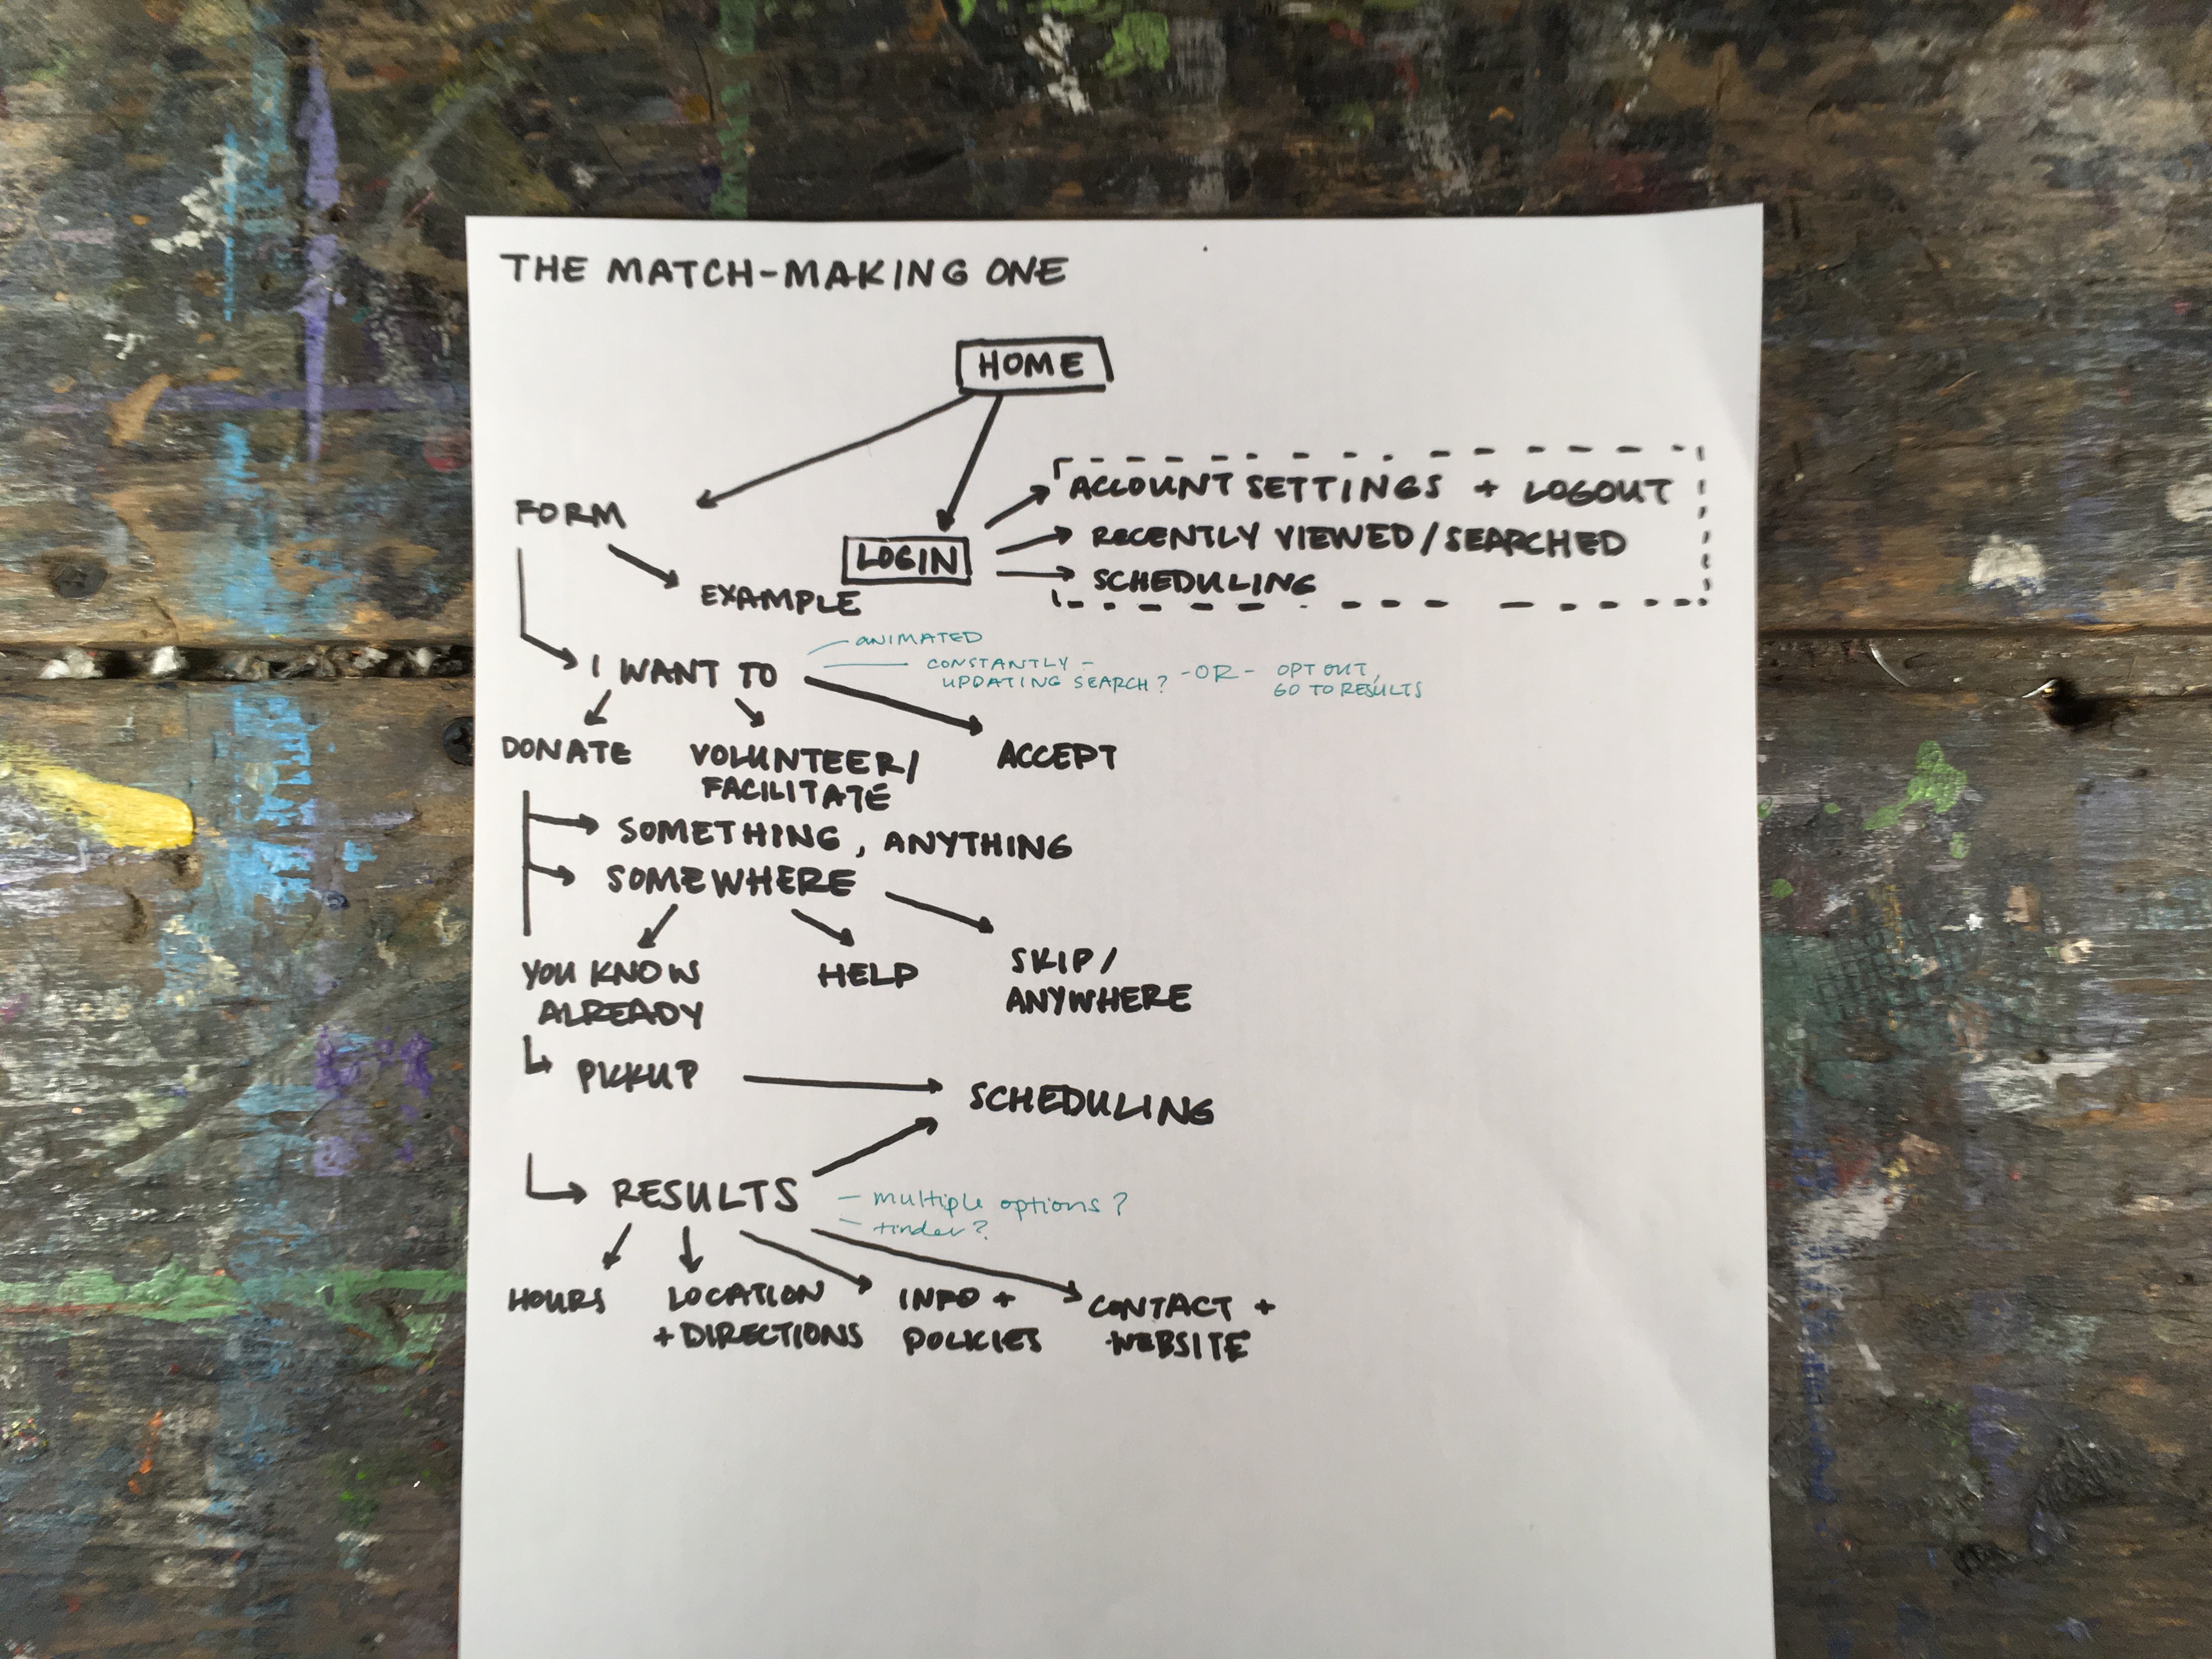 THE MATCH-MAKING ONE
HOME
FORM
EXAMPLE
LOGIN
ACCOUNT SETTINGS + LOGOUT
RECENTLY VIEWED/SEARCHED
SCHEDULING
I WANT TO
ANIMATED
CONSTANTLY -
UPDATING SEARCH? -OR- OPT OUT,
GO TO RESULTS
DONATE
VOLUNTEER/
FACILITATE
ACCEPT
SOMETHING, ANYTHING
SOMEWHERE
YOU KNOW
ALREADY
HELP
SKIP/
ANYWHERE
PICKUP
SCHEDULING
RESULTS
- multiple options?
- tinder?
HOURS
LOCATION
+ DIRECTIONS
INFO +
POLICIES
CONTACT +
WEBSITE